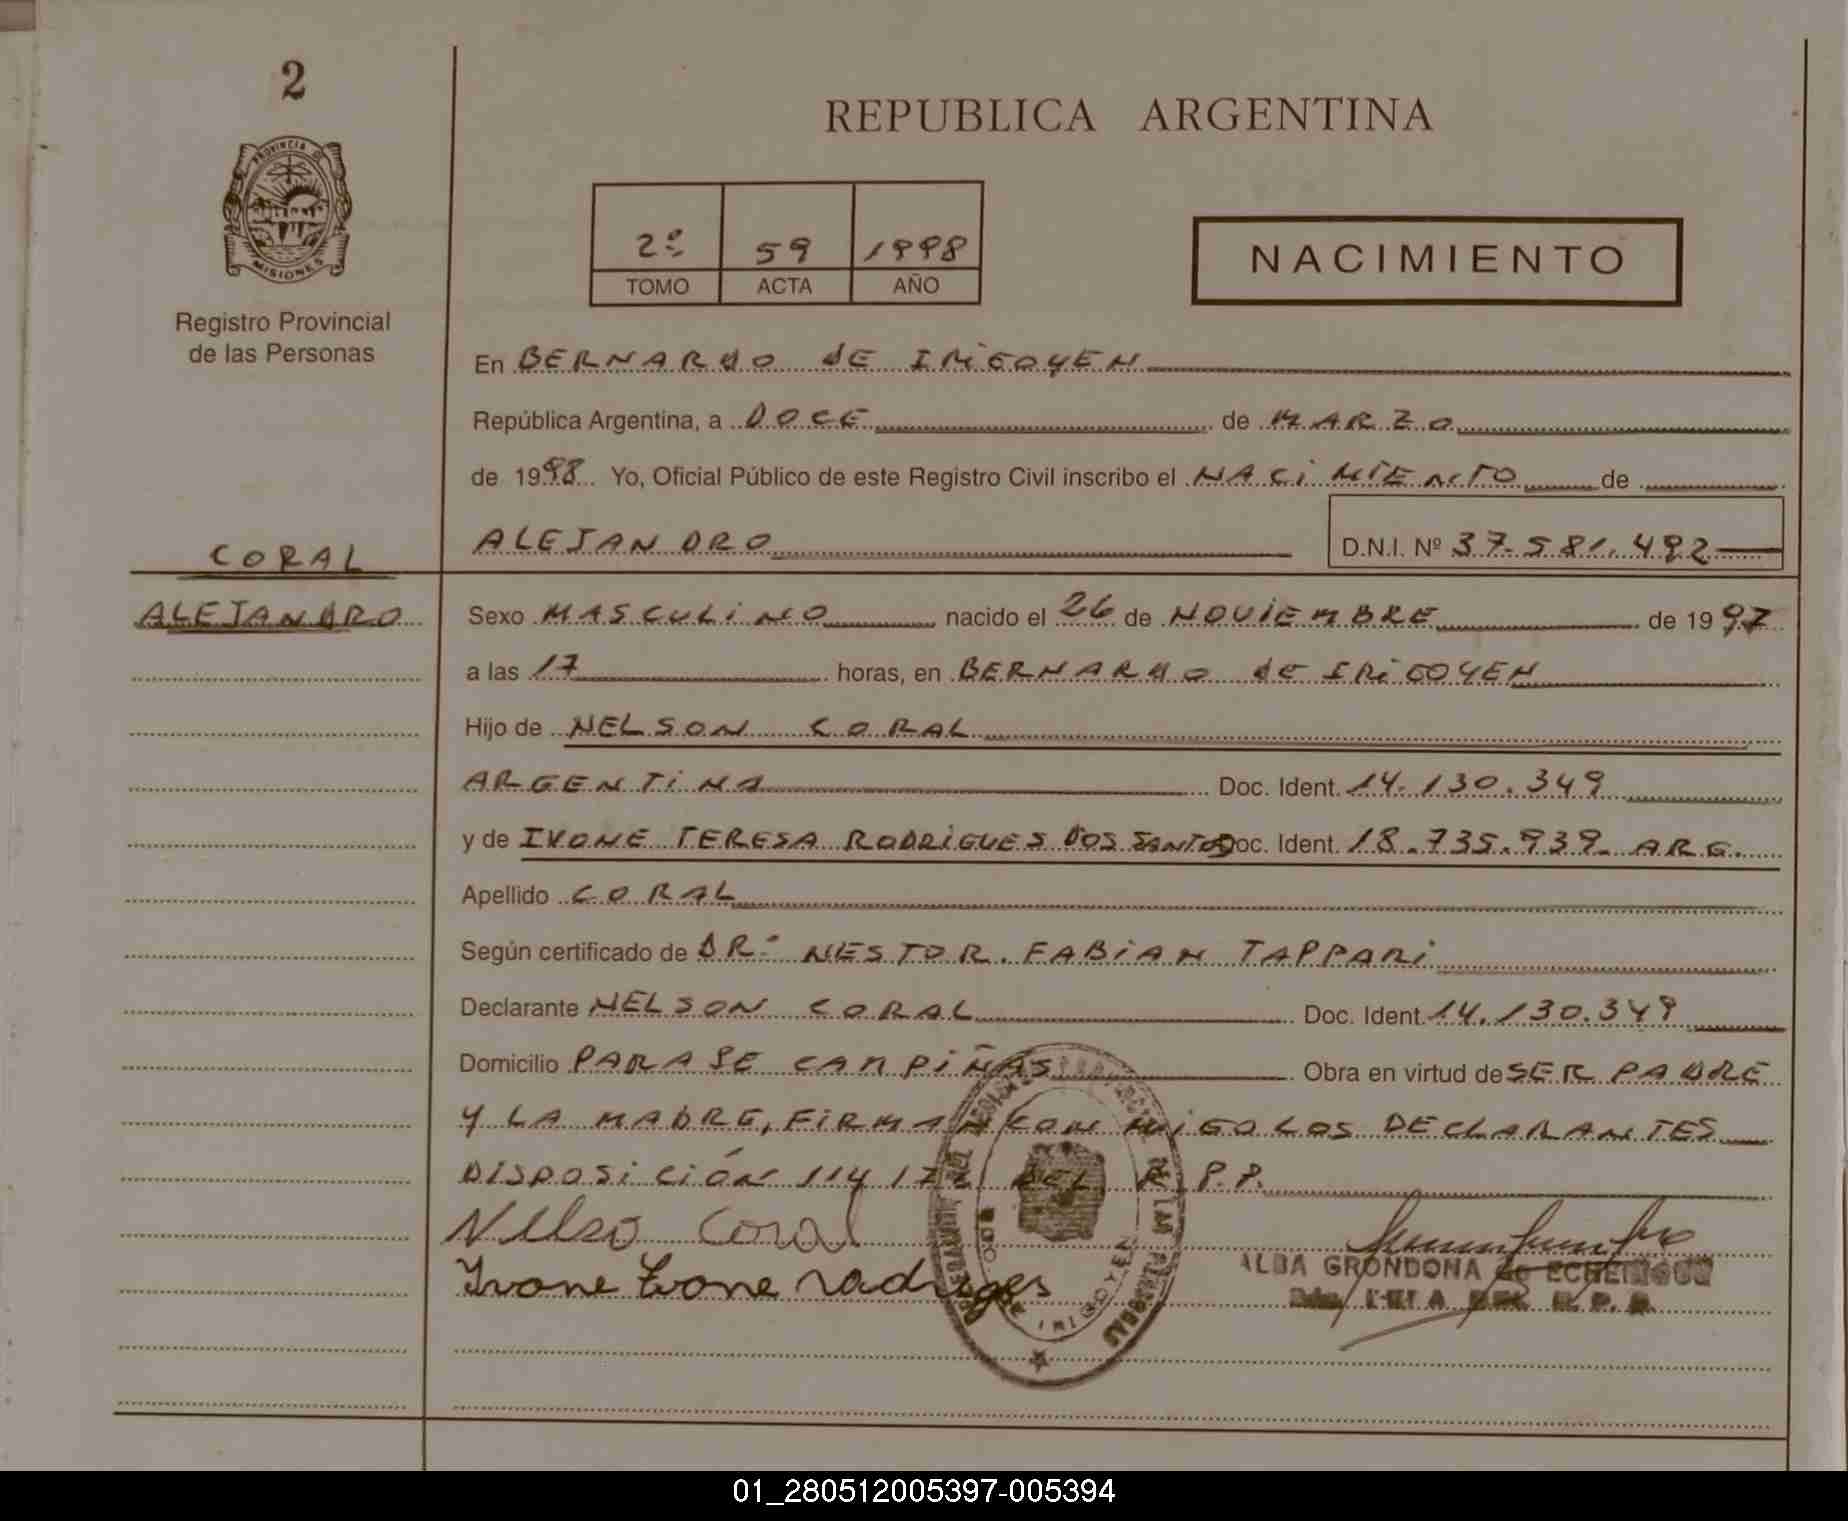 2
PROVINCIA DE
MISIONES
Registro Provincial
de las Personas
REPUBLICA ARGENTINA
2º 59 1998
TOMO ACTA AÑO
NACIMIENTO
En BERNARDO DE IRIGOYEN
República Argentina, a DOCE de MARZO
de 1998 Yo, Oficial Público de este Registro Civil inscribo el NACIMIENTO de
ALEJANDRO D.N.I. Nº 37.581.492
CORAL
ALEJANDRO
Sexo MASCULINO nacido el 26 de NOVIEMBRE de 1997
a las 17 horas, en BERNARDO DE IRIGOYEN
Hijo de NELSON CORAL
ARGENTINA Doc. Ident. 14.130.349
y de IVONE TERESA RODRIGUES DOS SANTOS Doc. Ident. 18.735.939. ARG.
Apellido CORAL
Según certificado de DR. NESTOR. FABIAN TAPPARI
Declarante NELSON CORAL Doc. Ident. 14.130.349
Domicilio PARAJE CAMPIÑAS Obra en virtud de SER PADRE
Y LA MADRE, FIRMAN CONMIGO LOS DECLARANTES
DISPOSICIÓN 114/72 DEL R.P.P.
Nelso Coral
Ivone Ivone radriges
ALBA GRONDONA de
DE LAS PERSONAS
IRIGOYEN
01_280512005397-005394